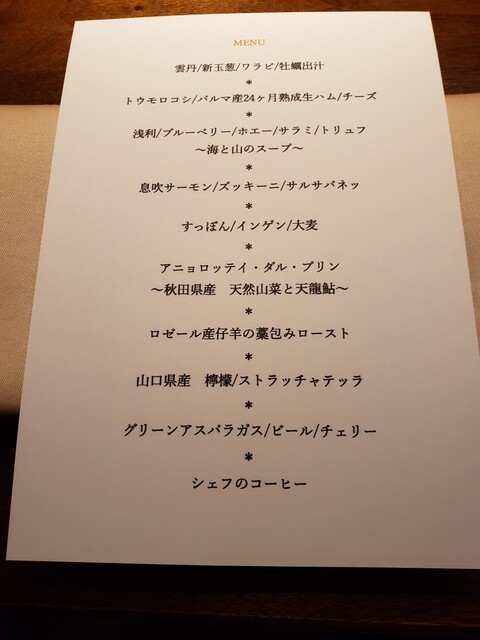 MENU
雲丹/新玉葱/ワラビ/牡蠣出汁
*
トウモロコシ/パルマ産24ヶ月熟成生ハム/チーズ
*
浅利/ブルーベリー/ホエー/サラミ/トリュフ
〜海と山のスープ〜
*
息吹サーモン/ズッキーニ/サルサバネッ
*
すっぽん/インゲン/大麦
*
アニョロッテイ・ダル・プリン
〜秋田県産　天然山菜と天龍鮎〜
*
ロゼール産仔羊の藁包みロースト
*
山口県産　檸檬/ストラッチャテッラ
*
グリーンアスパラガス/ビール/チェリー
*
シェフのコーヒー